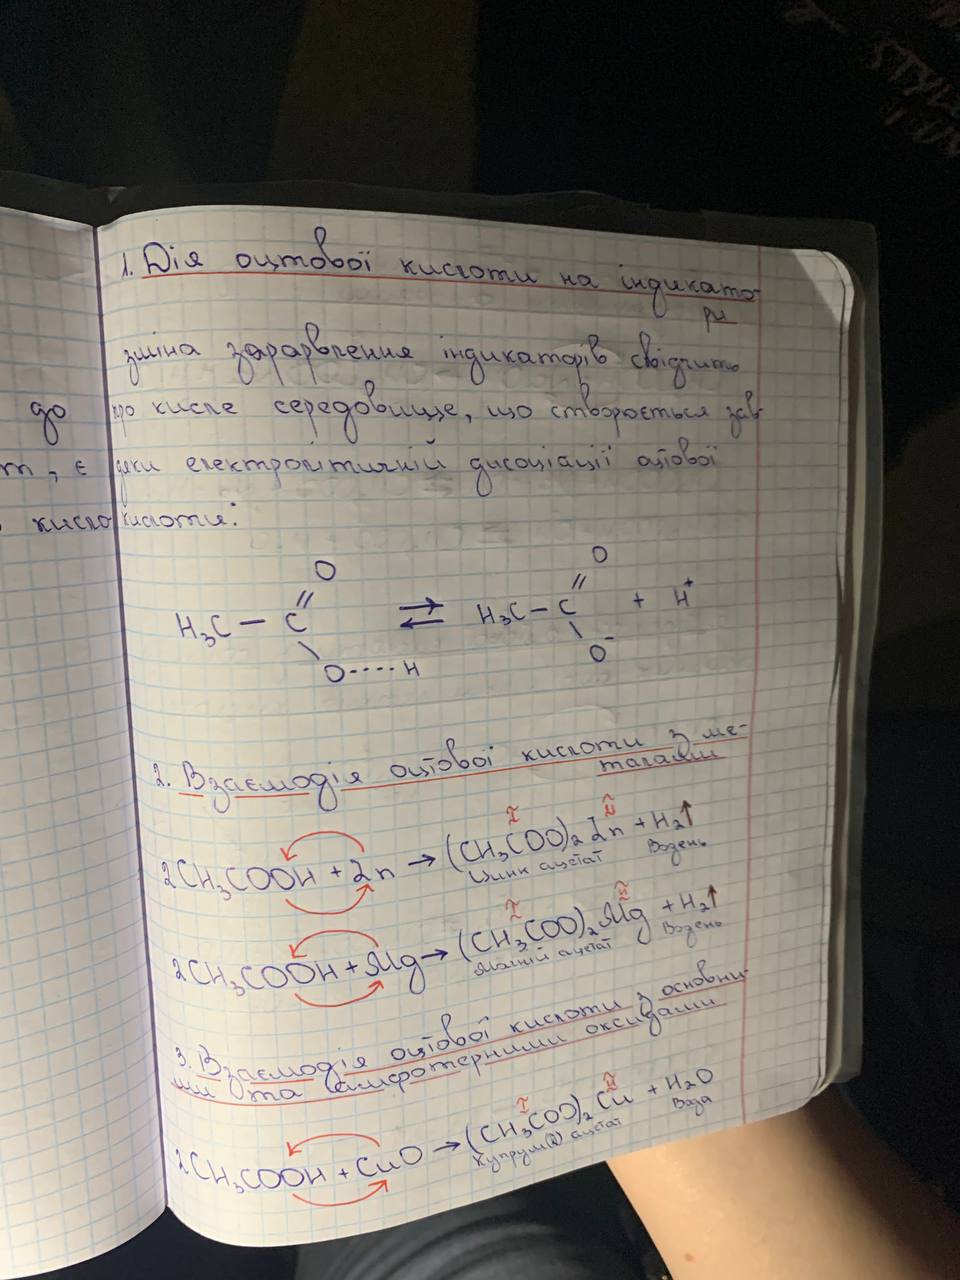 1. Дія оцтової кислоти на індикато-
ри
зміна зарарвлення індикаторів свідчить
до
про кисле середовище, що створюється зав-
т, є
дяки електролітичній дисоціації оцтової
кисло
кислоти:
O
O
H₃C – C ⇌ H₃C – C + H⁺
O····H
O⁻
2. Взаємодія оцтової кислоти з ме-
талами
I II
2CH₃COOH + Zn → (CH₃COO)₂Zn + H₂↑
Цинк ацетат Водень
I II
2CH₃COOH + Mg → (CH₃COO)₂Mg + H₂↑
Магній ацетат Водень
3. Взаємодія оцтової кислоти з основни-
ми та амфотерними оксидами
I II
2CH₃COOH + CuO → (CH₃COO)₂Cu + H₂O
Купрум(II) ацетат Вода